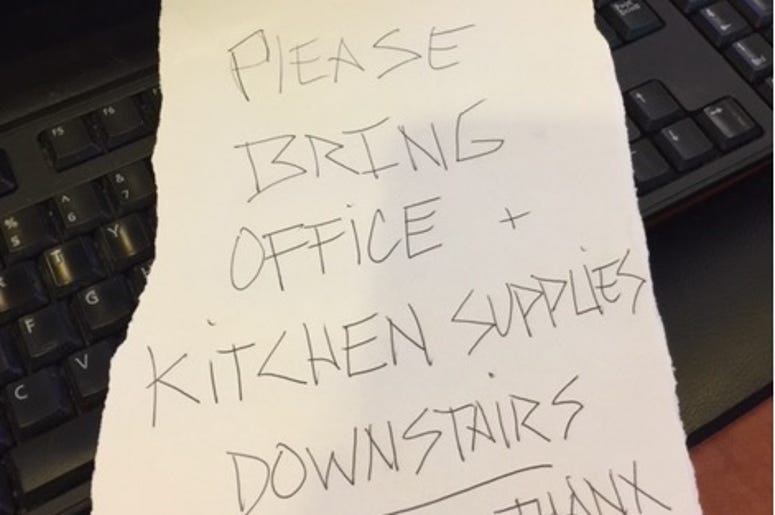 PLEASE
BRING
OFFICE +
KITCHEN SUPPLIES
DOWNSTAIRS
THANX
F5 F6
% 5 ^ 6 & 7
T Y
F G
C V